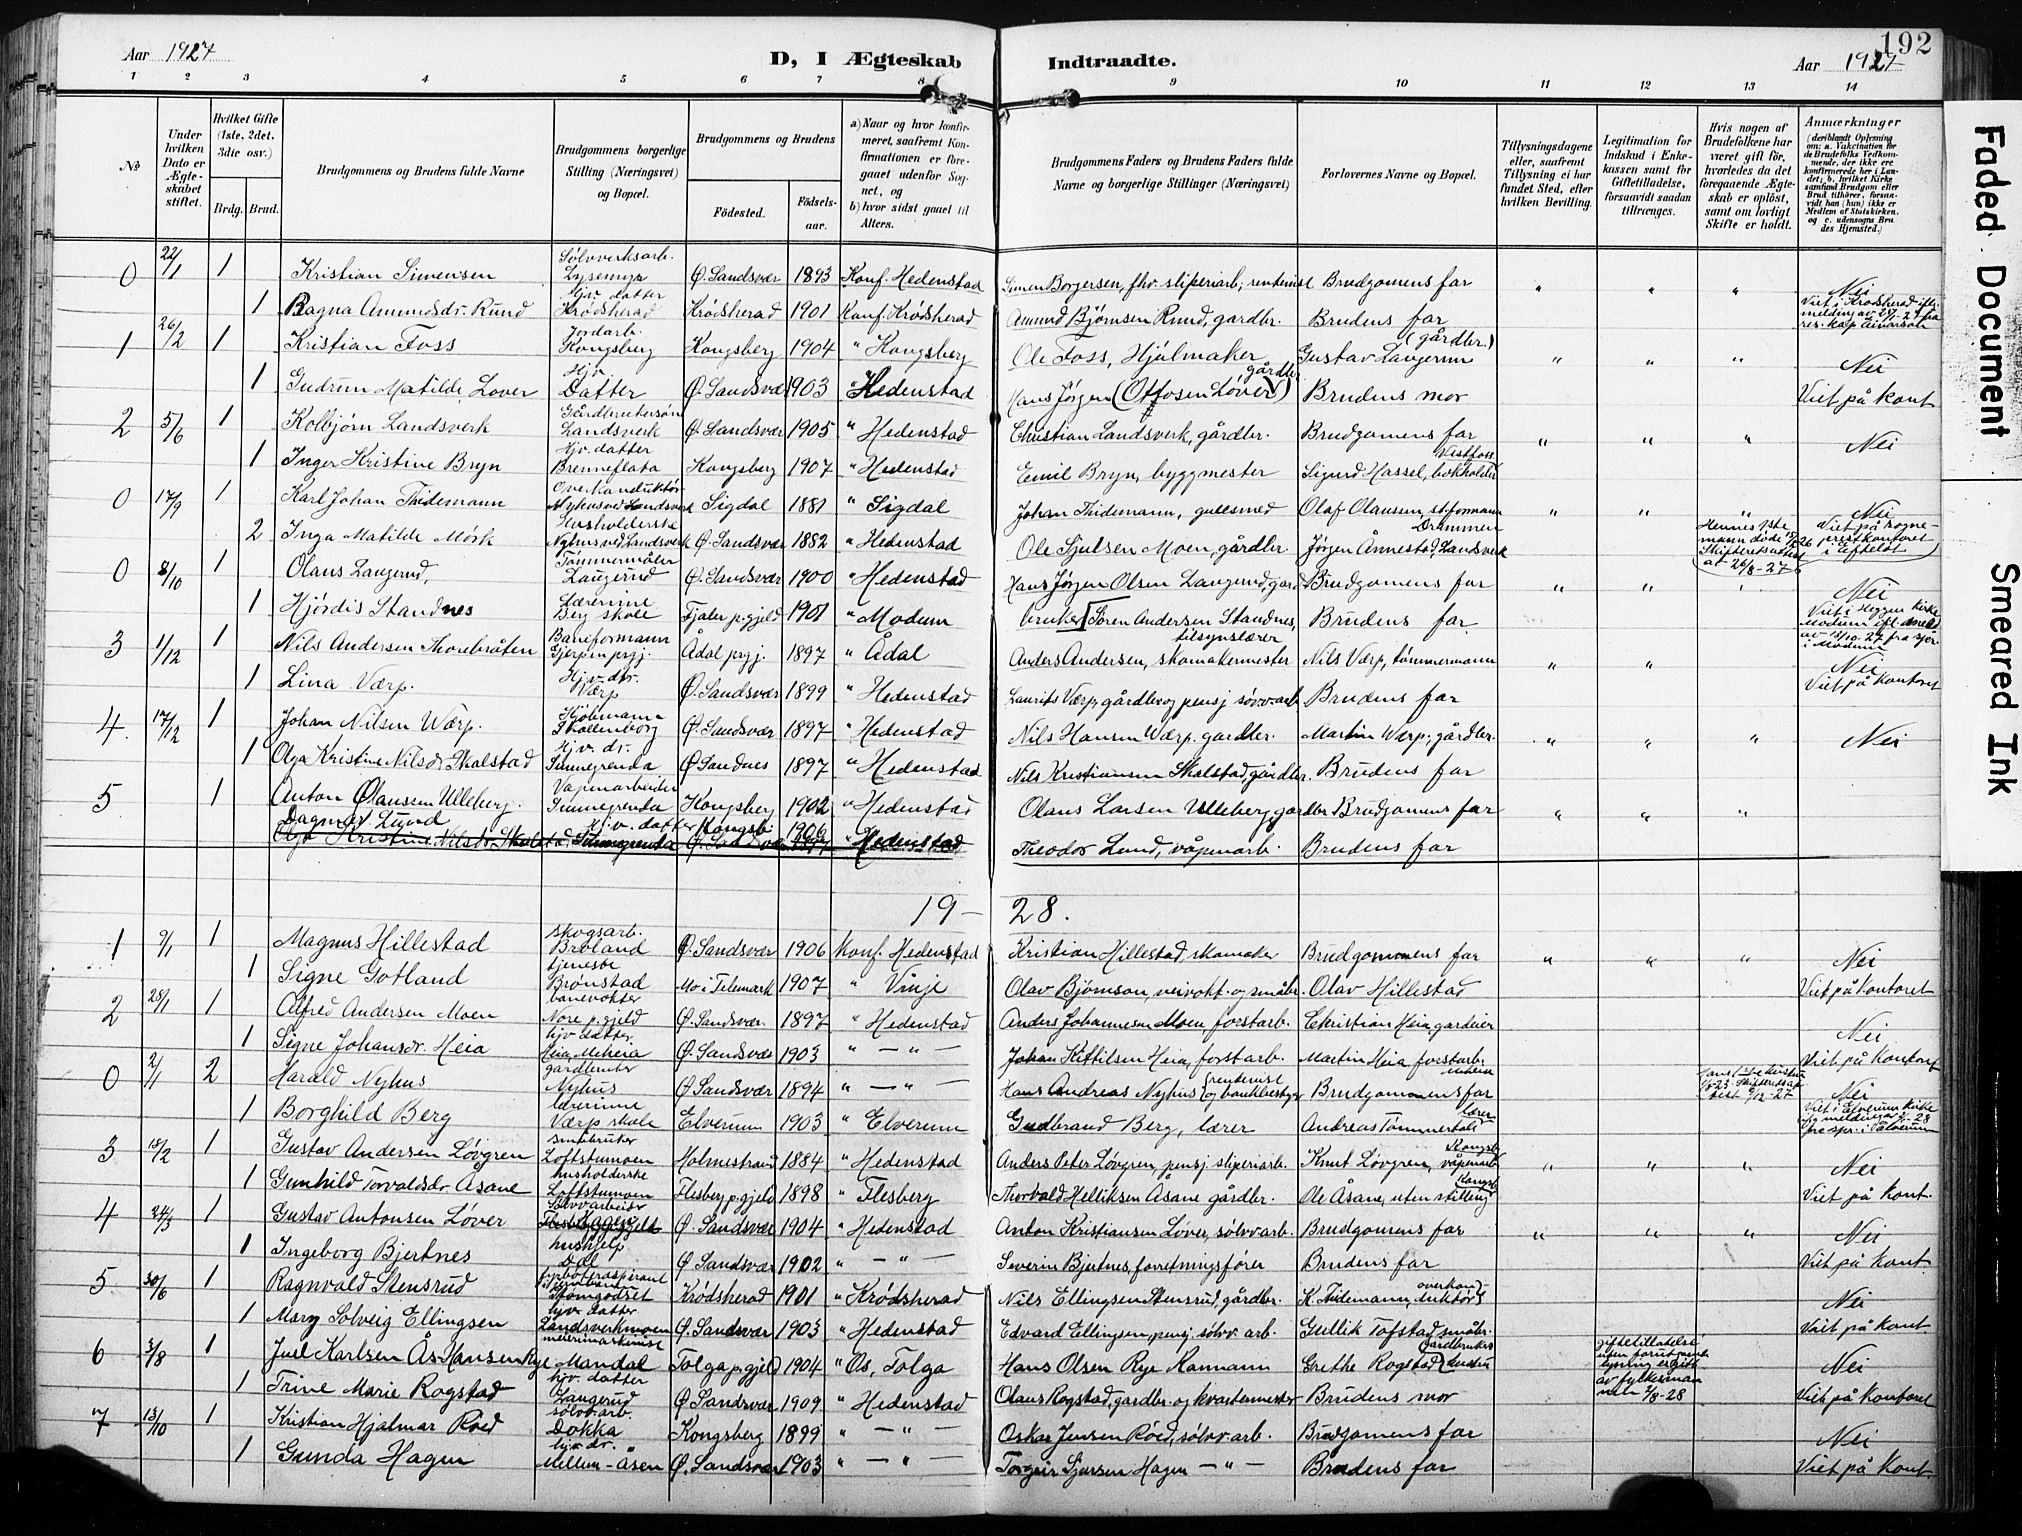 192
Aar 1927 D, I Ægteskab Indtraadte. Aar 1927
1 2 3 4 5 6 7 8 9 10 11 12 13 14
No
Under hvilken Dato er Ægteskabet stiftet.
Hvilket Gifte (1ste, 2det, 3die osv.)
Brdg. Brud.
Brudgommens og Brudens fulde Navne
Brudgommens borgerlige Stilling (Næringsvei) og Bopæl.
Brudgommens og Brudens
Fødested. Fødselsaar.
a) Naar og hvor konfirmeret, saafremt Konfirmationen er foregaaet udenfor Sognet, og
b) hvor sidst gaaet til Alters.
Brudgommens Faders og Brudens Faders fulde Navne og borgerlige Stillinger (Næringsvei)
Forlovernes Navne og Bopæl.
Tillysningsdagene eller, saafremt Tillysning ei har fundet Sted, efter hvilken Bevilling.
Legitimation for Indskud i Enkekassen samt for Giftetilladelse, forsaavidt saadan tiltrænges.
Hvis nogen af Brudefolkene har været gift før, hvorledes da det foregaaende Ægteskab er opløst, samt om lovligt Skifte er holdt.
Anmærkninger (deriblandt Oplysning om: a. Vakcination for de Brudefolks Vedkommende, der ikke ere konfirmerede her i Landet; b. hvilket Kirkesamfund Brudgom eller Brud tilhører, forsaavidt han (hun) ikke er Medlem af Statskirken, og c. udensogns Brudes Hjemsted.)
0 22/1 1 Kristian Simensen Sølvverksarb. Lysemyr Ø. Sandsvær 1893 Konf. Hedenstad Simen Borgersen, fhv. sliperiarb, rentenist Brudgomens far " " " Nei
1 Ragna Amundsdr. Rund Hjv. datter Krødsherad Krødsherad 1901 Konf. Krødsherad Amund Bjørnsen Rund, gardbr. Brudens far Viet i Krødsherad
1 26/2 1 Kristian Foss Jordarb. Kongsberg Kongsberg 1904 " Kongsberg Ole Foss, Hjulmaker Gustav Laugerud (gårdbr.) " " " Nei
1 Gudrun Matilde Lover Hjv. Datter Ø. Sandsvær 1903 " Hedenstad Hans Jørgen (Ottosen Løver) gårdbr. Brudens mor Viet på kont
2 5/6 1 Kolbjørn Landsverk Gårdbrukersøn Landsverk Ø. Sandsvær 1905 " Hedenstad Christian Landsverk, gårdbr. Brudgomens far " " " Nei
1 Inger Kristine Bryn Hjv. datter Brenneflata Kongsberg 1907 " Hedenstad Emil Bryn, byggmester Sigurd Hassel, bokholder Vestfoss
0 17/9 1 Karl Johan Thidemann Overkonduktør Nyhus ved Landsverk Sigdal 1881 " Sigdal Johan Thidemann, gullsmed Olaf Olaussen, stiformann Drammen " " " Nei
2 Inga Matilde Mørk Husholderske Nyhus ved Landsverk Ø. Sandsvær 1882 " Hedenstad Ole Sjulsen Moen, gårdbr Jørgen Ånnestad, Landsverk Hennes 1ste mann døde Skifteretsattest av 26/8-27 Viet på sogneprestkontoret i Efteløt
0 8/10 1 Olaus Laugerud, Tømmermåler Laugerud Ø. Sandsvær 1900 " Hedenstad Hans Jørgen Olsen Laugerud, gard Brudgomens far " " " Nei
1 Hjørdis Standnes Lærerinne Berg skole Fjaler p.gjeld 1901 " Modum bruker Søren Andersen Standnes, tilsynslærer Brudens far Viet i Heggen kirke Modum
3 1/12 1 Nils Andersen Thorebråten Baneformann Gjerpen prgj. Ådal prgj. 1897 " Ådal Anders Andersen, skomakermester Nils Værp, tømmermann " " Nei
1 Lina Værp. Hjv. dtr. Værp Ø. Sandsvær 1899 " Hedenstad Laurits Værp gårdbr og pensj sølvv.arb Brudens far Viet på kontoret
4 17/12 1 Johan Nilsen Værp. Kjøbmann Skollenborg Ø. Sandsvær 1897 " Hedenstad Nils Hansen Værp. gardbr. Martin Værp, gårdbr. " " " Nei
1 Olga Kristine Nilsdr Skalstad Hjv. dr. Simmegrenda Ø Sandnes 1897 " Hedenstad Nils Kristiansen Skalstad, gårdbr. Brudens far
5 1 Anton Olaussen Ulleberg. Vapenarbeider Simmegrenda Kongsberg 1902 " Hedenstad Olaus Larsen Ulleberg, gardbr Brudgomens far " " "
Dagmar Lund Hjv. datter Kongsb. 1906
Olga Kristine Nilsdr Skalstad Simmegrenda Ø. Sandsvær 1897 " Hedenstad Theodor Lund, våpenarb. Brudens far
19 - 28.
1 9/1 1 Magnus Hillestad skogsarb. Broland Ø. Sandsvær 1906 Konf. Hedenstad Kristian Hillestad, skomaker Brudgommens far " " " Nei
1 Signe Gotland tjeneste Brønstad Mo i Telemark 1907 " Vinje Olav Bjørnson, veivokt. og småbr. Olav Hillestad Viet på kontoret
2 28/1 1 Alfred Andersen Moen banevokter Nore p.gjeld Ø. Sandsvær. 1897 " Hedenstad Anders Johannesen Moen, forstarb. Christian Heia gardeier Nei
1 Signe Johansdr. Heia hjv. datter. Heia, Meheia Ø. Sandsvær 1903 " — " — Johan Kittilsen Heia, forstarb. Martin Heia forstarb. Meheia Viet på kontoret
0 2/1 2 Harald Nyhus gardbruker Nyhus Ø Sandsvær 1894 " — " — Hans Andreas Nyhus (rentenist og bankbestyr Brudgommens far Nei
1 Borghild Berg lærerinne Værp skole Elverum 1903 " Elverum Gudbrand Berg, lærer Andreas Tømmerdal lærer Viet i Elverum kirke
3 18/2 1 Gustav Andersen Løvgren småbruker Loftstumoen Holmestrand 1884 " Hedenstad Anders Peter Løvgren, pensj sliperiarb. Knut Løvgren, våpenarb Kongsb " " " Nei
1 Gunhild Torvaldsdr. Åsane husholderske Loftstumoen Flesberg p.gjeld 1898 " Flesberg Thorvald Helliksen Åsane gårdbr. Ole Åsane, uten stilling Kongsb Viet på kont.
4 24/3 1 Gustav Antonsen Løver Sølvv arbeider Ø. Sandsvær 1904 " Hedenstad Anton Kristiansen Løver, sølvv arb. Brudgomens far " " " Nei
1 Ingeborg Bjertnes hushjelp Dal Ø Sandsvær 1902 " — " — Severin Bjertnes, forretningsfører Brudens far Viet på kont.
5 30/6 1 Ragnvald Stensrud Strømgodset Krødsherad 1901 " Krødsherad Nils Ellingsen Stensrud, gårdbr. K. Thidemann, overkonduktør Nei
1 Mary Solveig Ellingsen hjv. datter Landsverkmoen Ø. Sandsvær 1903 " Hedenstad Edvard Ellingsen pensj. sølvv. arb. Gullik Tofstad småbr. Viet på kont
6 3/8 1 Juel Karlsen Ås Hansen Rye Mandal Tolga p.gjeld 1904 " Os, Tolga Hans Olsen Rye Kamann Grethe Rogstad gårdbruker giftetillatelse uten forutgående lysning er gitt av fylkesmannen 2/8-28 Nei
1 Trine Marie Rogstad hjv. datter Laugerud Ø. Sandsvær 1909 " Hedenstad Olaus Rogstad, gardbr. og kvartermester Brudens mor Viet på kontoret
7 13/10 1 Kristian Hjalmar Roed sølvv. arb. Dokka Kongsberg 1899 " — " — Oskar Jensen Röed, sølvv. arb. Brudgomens far Nei
1 Gunda Hagen hjv. dr. Mellem-Åsen Ø. Sandsvær 1903 " — " — Torgeir Sjursen Hagen — " — Brudens far Viet på kont
Faded Document Smeared Ink